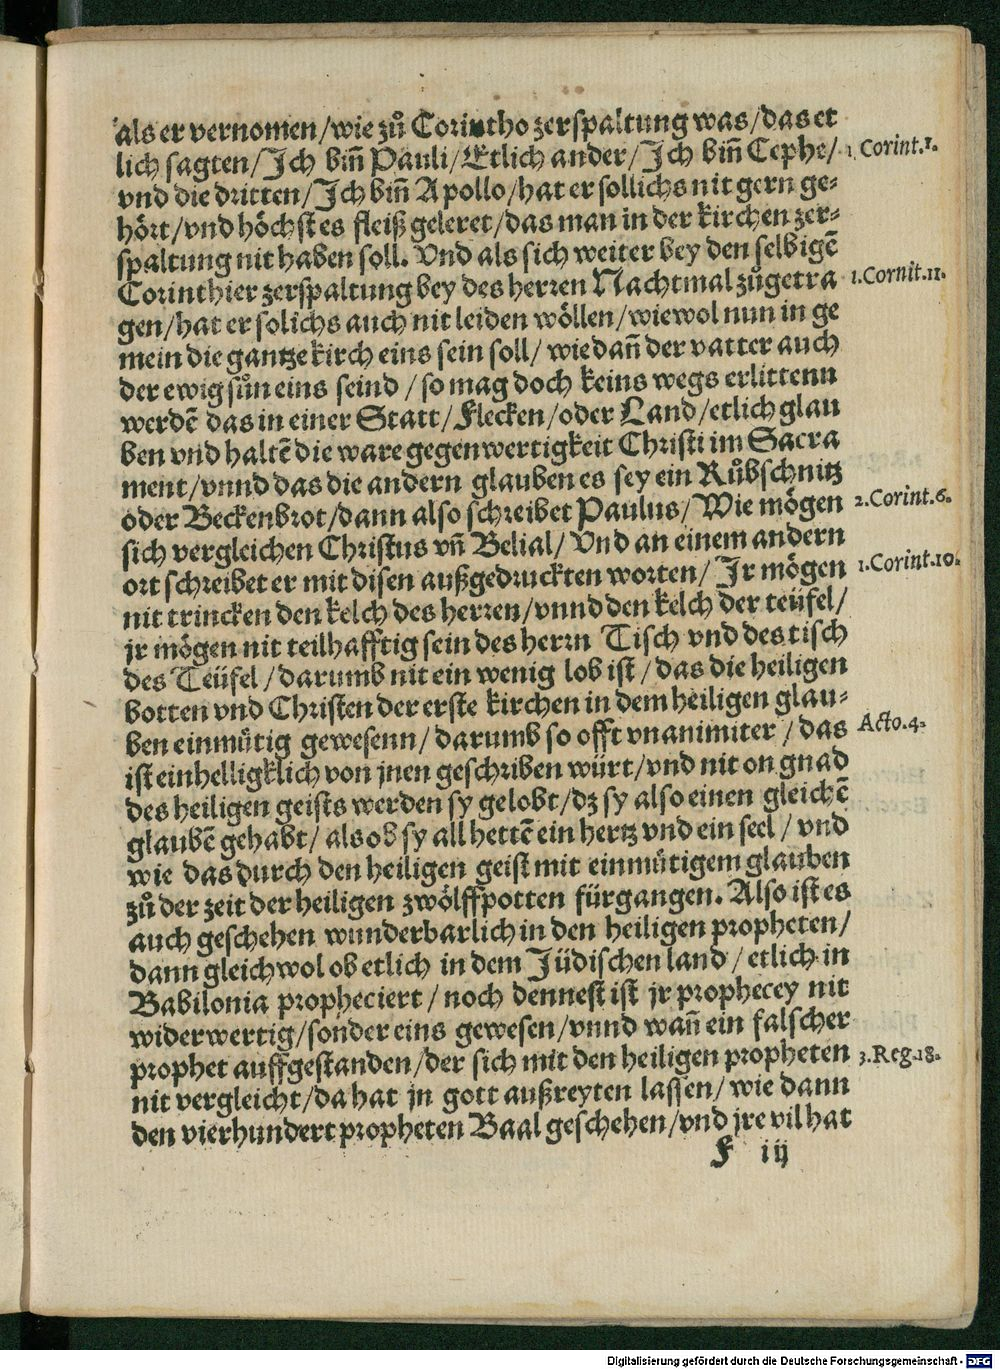 als er vernomen/wie zů Corintho zerspaltung was/das et
lich sagten/Ich biñ Pauli/Etlich ander/Ich biñ Cephe/
1 Corint.1.
vnd die dritten/Ich biñ Apollo/hat er sollichs nit gern ge-
hört/vnd höchstes fleiß geleret/das man in der kirchen zer-
spaltung nit haben soll. Vnd als sich weiter bey den selbigẽ
Corinthier zerspaltung bey des herren Nachtmal zůgetra
1.Cornit.11.
gen/hat er solichs auch nit leiden wöllen/wiewol nun in ge
mein die gantze kirch eins sein soll/ wie dañ der vatter auch
der ewig sůn eins seind /so mag doch keins wegs erlittenn
werdẽ das in einer Statt/Flecken/oder Land/etlich glau
ben vnd haltẽ die ware gegenwertigkeit Christi im Sacra
ment/vnnd das die andern glauben es sey ein Růbschnitz
oder Beckenbrot/dann also schreibet Paulus/Wie mögen
2.Corint.6.
sich vergleichen Christus vñ Belial/ Vnd an einem andern
ort schreibet er mit disen außgedruckten worten/ Jr mögen
1.Corint.10.
nit trincken den kelch des herren/vnnd den kelch der teüfel/
jr mögen nit teilhafftig sein des herrn Tisch vnd des tisch
des Teüfel/darumb nit ein wenig lob ist/das die heiligen
botten vnd Christen der erste kirchen in dem heiligen glau-
ben einmütig gewesenn/darumb so offt vnanimiter/das
Acto.4.
ist einhelligklich von jnen geschriben würt/vnd nit on gnad
des heiligen geists werden sy gelobt/dz sy also einen gleichẽ
glaubẽ gehabt/ als ob sy all hettẽ ein hertz vnd ein seel/ vnd
wie das durch den heiligen geist mit einmütigem glauben
zů der zeit der heiligen zwölffpotten fürgangen. Also ist es
auch geschehen wunderbarlich in den heiligen propheten/
dann gleichwol ob etlich in dem Jüdischen land/etlich in
Babilonia propheciert/noch dennest ist jr prophecey nit
widerwertig/sonder eins gewesen/vnnd wañ ein falscher
prophet auffgestanden/der sich mit den heiligen propheten
3.Reg.18.
nit vergleicht/da hat jn gott außreyten lassen/wie dann
den vierhundert propheten Baal geschehen/vnd jre vil hat
F iij
Digitalisierung gefördert durch die Deutsche Forschungsgemeinschaft - DFG